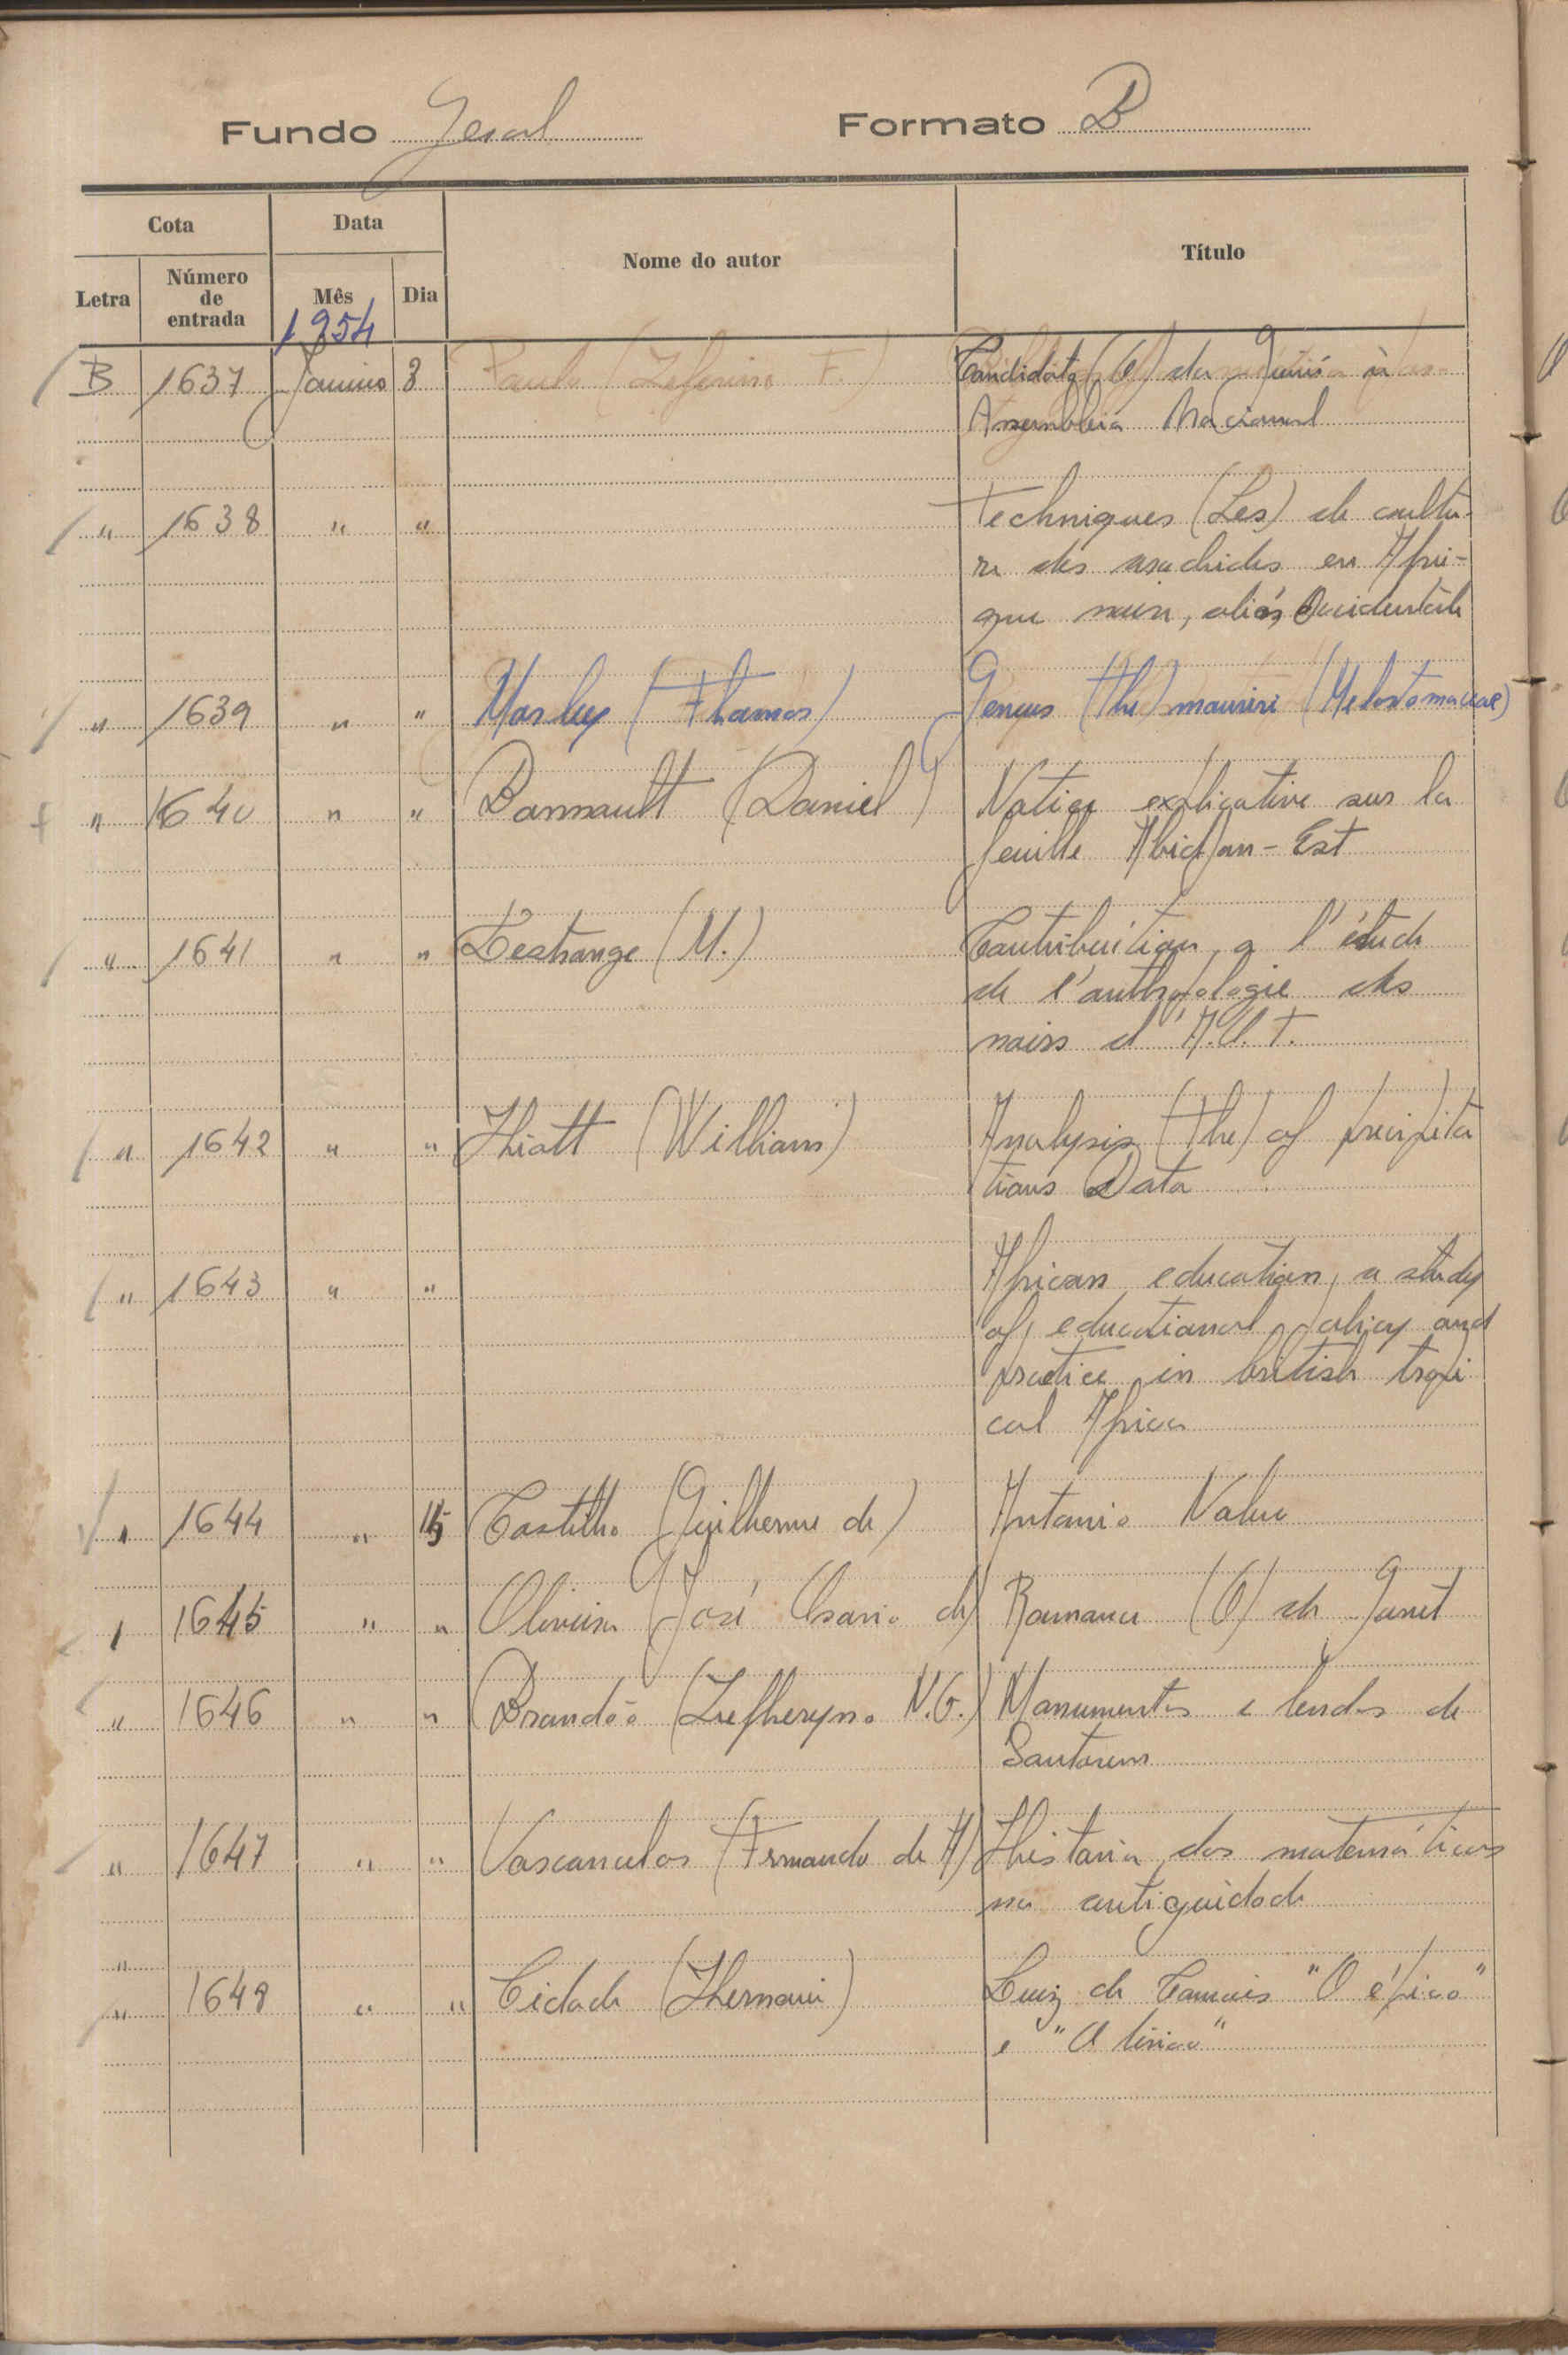 Fundo Geral Formato B
Cota Data Nome do autor Título
Letra Número de entrada Mês Dia
1954
B 1637 Janeiro 8 Paulo (Zeferino F.) Candidato (O) da Guiné à
Assembleia Nacional
" 1638 " " Techniques (Les) de cultu-
re des arachides en Afri-
que noire, aliás Occidentale
" 1639 " " Morley (Thomas) Genus (The) mouriri (Melastomaceae)
" 1640 " " Bonnault (Daniel) Notice explicative sur la
feuille Abidjan-Est
" 1641 " " Lestrange (M.) Contribuition, a l'étude
de l'anthropologie des
noirs d'A.O.F.
" 1642 " " Hiatt (William) Analysis (The) of precipita
tions Data
" 1643 " " African education, a study
of educational policy and
practice in british tropi
cal Africa
" 1644 " 15 Castilho (Guilherme de) Antonio Nobre
" 1645 " " Oliveira (José Osorio de) Romance (O) de Garret
" 1646 " " Brandão (Zephyryno N.G.) Monumentos e lendas de
Santarem
" 1647 " " Vasconcelos (Fernando de A) Historia das matemáticas
na antiguidade
"
" 1648 " " Cidade (Hernani) Luiz de Camois "O épico"
e "O lirico"